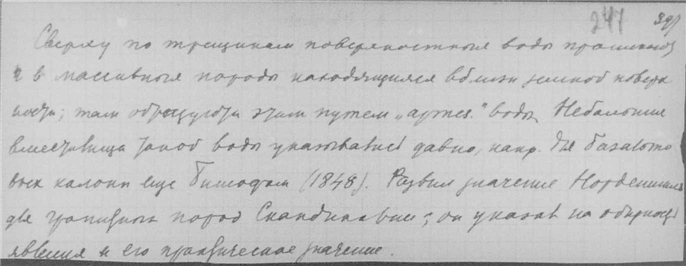 241 391
Сверху по трещинам поверхностные воды проникают
и в массивные породы находящиеся вблизи земной поверх
ности; там образуются этим путем „артез." воды. Небольшие
вместилища такой воды указывались давно, напр. для базальто
вых колонн еще Бишофом (1848). Развил значение Норденшельд
для гранитных пород Скандинавии; он указал на обширность
явления и его практическое значение.